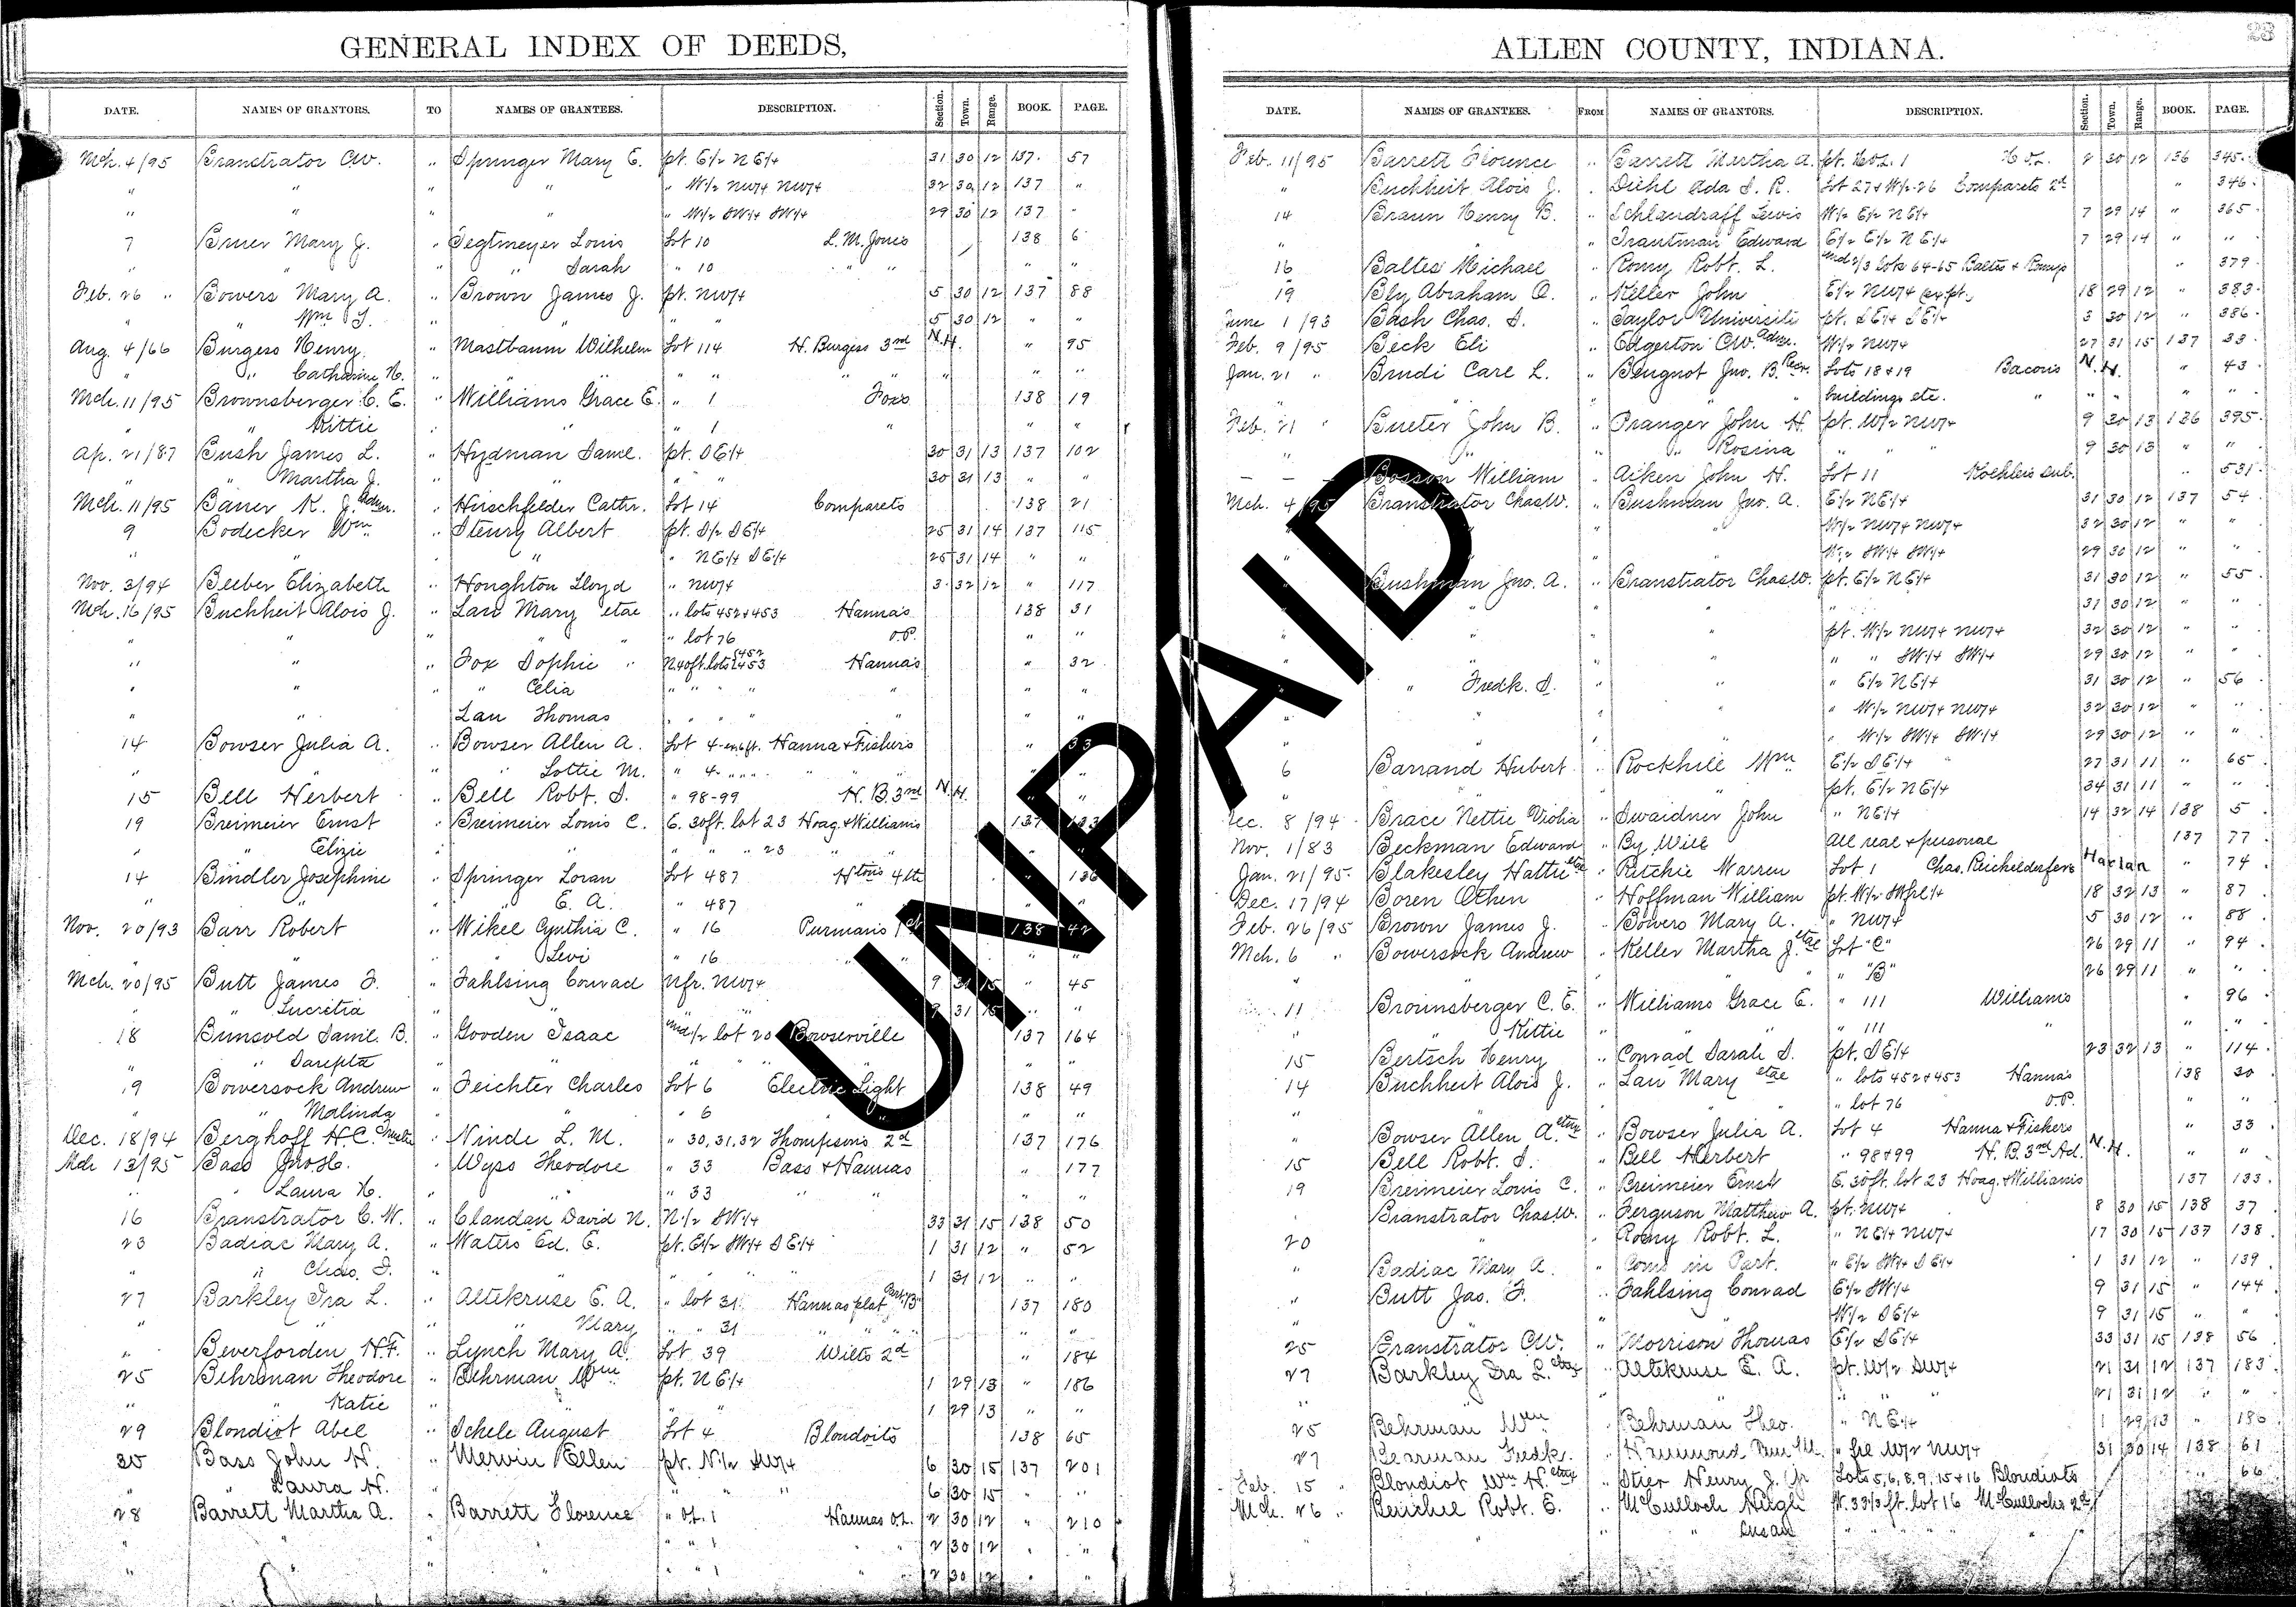 GENERAL INDEX OF DEEDS,
DATE. NAMES OF GRANTORS. TO NAMES OF GRANTEES. DESCRIPTION. Section. Town. Range. BOOK. PAGE.
Mch. 4/95 Branstrator CW. " Springer Mary E. pt. E1/2 NE1/4 31 30 12 137. 57
" " " " " W1/2 NW1/4 NW1/4 32 30 12 137 "
" " " " " W1/2 SW1/4 SW1/4 29 30 12 137 "
7 Bruer Mary J. " Tegtmeyer Louis Lot 10 L. M. Jones 138 6
" " " " Sarah " 10 " " " "
Feb. 26 " Bowers Mary A. " Brown James J. pt. NW1/4 5 30 12 137 88
" " Wm " " " " 5 30 12 " "
Aug. 4/66 Burgess Henry. " Mastbaum Wilhelm Lot 114 H. Burgess 3rd N.H. " 95
" " Catharine H. " " " " " " " " "
Mch. 11/95 Brownsberger C. E. " Williams Grace E. " 1 Fox's 138 19
" " Kittie " " " 1 " " "
Ap. 21/87 Bush James L. " Hydman Saml. pt. SE1/4 30 31 13 137 102
" " Martha J. " " " " 30 31 13 " "
Mch. 11/95 Bauer K. J. Admr. " Hirschfelder Cathr. Lot 14 Comparets 138 21
9 Bodecker Wm " Steury Albert pt. S1/2 SE1/4 25 31 14 137 115
" " " " " NE1/4 SE1/4 25 31 14 " "
Nov. 3/94 Beeber Elizabeth " Houghton Lloyd " NW1/4 3 32 12 " 117
Mch. 16/95 Buchheit Alois J. " Lau Mary etal " lots 452+453 Hanna's 138 31
" " " " " " lot 76 O.P. " "
" " " Fox Sophie " N. 40ft. lots 452 453 Hanna's " 32
" " " " Celia " " " " " " "
" " Lau Thomas " " " " " " "
14 Bowser Julia A. " Bowser Allen A. Lot 4-ex 6 ft. Hanna + Fisher's " 33
" " " " Lottie M. " 4 " " " " " " " "
15 Bell Herbert " Bell Robt. S. " 98-99 H. B. 3rd N.H. " "
19 Breimeier Ernst " Breimeier Louis C. E. 30ft. lot 23 Hoag. + Williams 137 133
" " Elizie " " " " " 23 " " "
14 Bindler Josephine " Springer Loran Lot 487 Htons 4th " 136
" " " E. A. " 487 " " "
Nov. 20/93 Barr Robert " Wikel Cynthia C. " 16 Purmans 1st 138 42
" " " " Levi " 16 " " " "
Mch. 20/95 Butt James F. " Fahlsing Conrad Nfr. NW1/4 9 31 15 " 45
" " Lucretia " " " " 9 31 15 " "
18 Bunsold Saml. B. " Gooden Isaac und 1/2 lot 20 Bowserville 137 164
" " Sarepta " " " " " " " "
19 Bowersock Andrew " Feichter Charles Lot 6 Electric Light 138 49
" " Malinda " " " 6 " " " "
Dec. 18/94 Berghoff H.C. Trustee " Ninde L. M. " 30, 31, 32 Thompsons 2d 137 176
Mch 13/95 Bass Jno. H. " Wyss Theodore " 33 Bass + Hannas " 177
" " Laura H. " " " 33 " " " "
16 Branstrator C. W. " Clandan David N. N1/2 SW1/4 33 31 15 138 50
23 Badiac Mary A. " Waters Ed. E. pt. E1/2 SW1/4 SE1/4 1 31 12 " 52
" " Chas. S. " " " " " 1 31 12 " "
27 Barkley Ira L. " Altekruse E. A. " lot 31 Hannas plat Part "B" 137 180
" " " " Mary " " 31 " " " " "
" Beverforden H.F. " Lynch Mary A. Lot 39 Wilts 2d " 184
25 Behrman Theodore " Behrman Wm pt. NE1/4 1 29 13 " 186
" " Katie " " " " 1 29 13 " "
29 Blondiot Abel " Schele August Lot 4 Blondoits 138 65
30 Bass John H. " Mervin Ellen pt. N1/2 SW1/4 6 30 15 137 201
" " Laura H. " " " " " 6 30 15 " "
28 Barrett Martha A. " Barrett Florence " OL. 1 Hannas O.L. 2 30 12 " 210
" " " " " " 1 " " 2 30 12 " "
" " " " " " 1 " " 2 30 12 " "
ALLEN COUNTY, INDIANA.
23
DATE. NAMES OF GRANTEES. FROM NAMES OF GRANTORS. DESCRIPTION. Section. Town. Range. BOOK. PAGE.
Feb. 11/95 Barrett Florence " Barrett Martha A. pt. H OL. 1 H O.L. 2 30 12 136 345
" Buchheit Alois J. " Diehl Ada S. R. Lot 27 + W1/2-26 Comparets 2d " 346
14 Braun Henry B. " Schlaudraff Lewis W1/2 E1/2 NE1/4 7 29 14 " 365
" " " Trautman Edward E1/2 E1/2 NE1/4 7 29 14 " "
16 Baltes Michael " Romy Robt. L. und 2/3 lots 64-65 Baltes + Romys " 379
19 Bly Abraham O. " Keller John E1/2 NW1/4 ex pt. 18 29 12 " 383
June 1/93 Bash Chas. S. " Taylor Universiti pt. SE1/4 SE1/4 3 30 12 " 386
Feb. 9/95 Beck Eli " Edgerton CW. Admr. W1/2 NW1/4 27 31 15 137 33
Jan. 21 " Brudi Carl L. " Beugnot Jno. B. Recr. Lots 18+19 Bacons N.H. " 43
" " " " " buildings etc. " " " " "
Feb. 21 " Bueter John B. " Pranger John H. pt. W1/2 NW1/4 9 30 13 136 395
" " " " Rosina " " " 9 30 13 " "
— — — Bosson William " Aiken John H. Lot 11 Koehlers Sub. " 531
Mch. 4/95 Branstrator Chas W. " Bushman Jno. A. E1/2 NE1/4 31 30 12 137 54
" " " " W1/2 NW1/4 NW1/4 32 30 12 " "
" " " " W1/2 SW1/4 SW1/4 29 30 12 " "
" Bushman Jno. A. " Branstrator Chas W. pt. E1/2 NE1/4 31 30 12 " 55
" " " " " 31 30 12 " "
" " " " pt. W1/2 NW1/4 NW1/4 32 30 12 " "
" " " " " " SW1/4 SW1/4 29 30 12 " "
" " Fredk. S. " " " E1/2 NE1/4 31 30 12 " 56
" " " " " W1/2 NW1/4 NW1/4 32 30 12 " "
" " " " " W1/2 SW1/4 SW1/4 29 30 12 " "
6 Barrand Hubert " Rockhill Wm E1/2 SE1/4 27 31 11 " 65
" " " " pt. E1/2 NE1/4 34 31 11 " "
Dec. 8/94 Brace Nettie Viola " Swaidner John " NE1/4 14 32 14 138 5
Nov. 1/83 Beckman Edward " By Will All real + personal 137 77
Jan. 21/95 Blakesley Hattie etal " Ritchie Warren Lot 1 Chas. Reichelderfers Harlan " 74
Dec. 17/94 Boren Othen " Hoffman William pt. W1/2 SWfrl1/4 18 32 13 " 87
Feb. 26/95 Brown James J. " Bowers Mary A. " NW1/4 5 30 12 " 88
Mch. 6 " Bowersock Andrew " Keller Martha J. etal Lot "C" 26 29 11 " 94
" " " " " "B" 26 29 11 " "
11 Brownsberger C. E. " Williams Grace E. " 111 Williams " 96
" " Kittie " " " 111 " " "
15 Bertsch Henry " Conrad Sarah S. pt. SE1/4 23 32 13 " 114
14 Buchheit Alois J. " Lau Mary etal " lots 452+453 Hanna's 138 30
" " " " " lot 76 O.P. " "
" Bowser Allen A. etux " Bowser Julia A. Lot 4 Hanna + Fishers " 33
15 Bell Robt. S. " Bell Herbert " 98+99 H. B. 3rd Ad. N.H. " "
19 Breimeier Louis C. " Breimeier Ernst E. 30ft. lot 23 Hoag. + Williams 137 133
" Branstrator Chas W. " Ferguson Matthew A. pt. NW1/4 8 30 15 138 37
20 " " Romy Robt. L. " NE1/4 NW1/4 17 30 15 137 138
" Badiac Mary A. " Coms in Part. " E1/2 SW1/4 SE1/4 1 31 12 " 139
" Butt Jas. F. " Fahlsing Conrad E1/2 SW1/4 9 31 15 " 144
" " " " W1/2 SE1/4 9 31 15 " "
25 Branstrator CW. " Morrison Thomas E1/2 SE1/4 33 31 15 138 56
27 Barkley Ira L. etux " Altekruse E. A. pt. W1/2 SW1/4 21 31 12 137 183
" " " " " " " 21 31 12 " "
25 Behrman Wm " Behrman Theo. " NE1/4 1 29 13 " 186
27 Bearman Fredk. " Hammond Wm M. " frl W1/2 NW1/4 31 30 14 138 61
Feb. 15 " Blondiot Wm H. etux " Stier Henry J. Jr Lots 5, 6, 8, 9, 15+16 Blondiots " 66
Mch. 26 " Robt. E. " McCulloch Hugh N. 33 1/3 ft. lot 16 McCullochs 2d
" " " " Susan " " " "
UNPAID